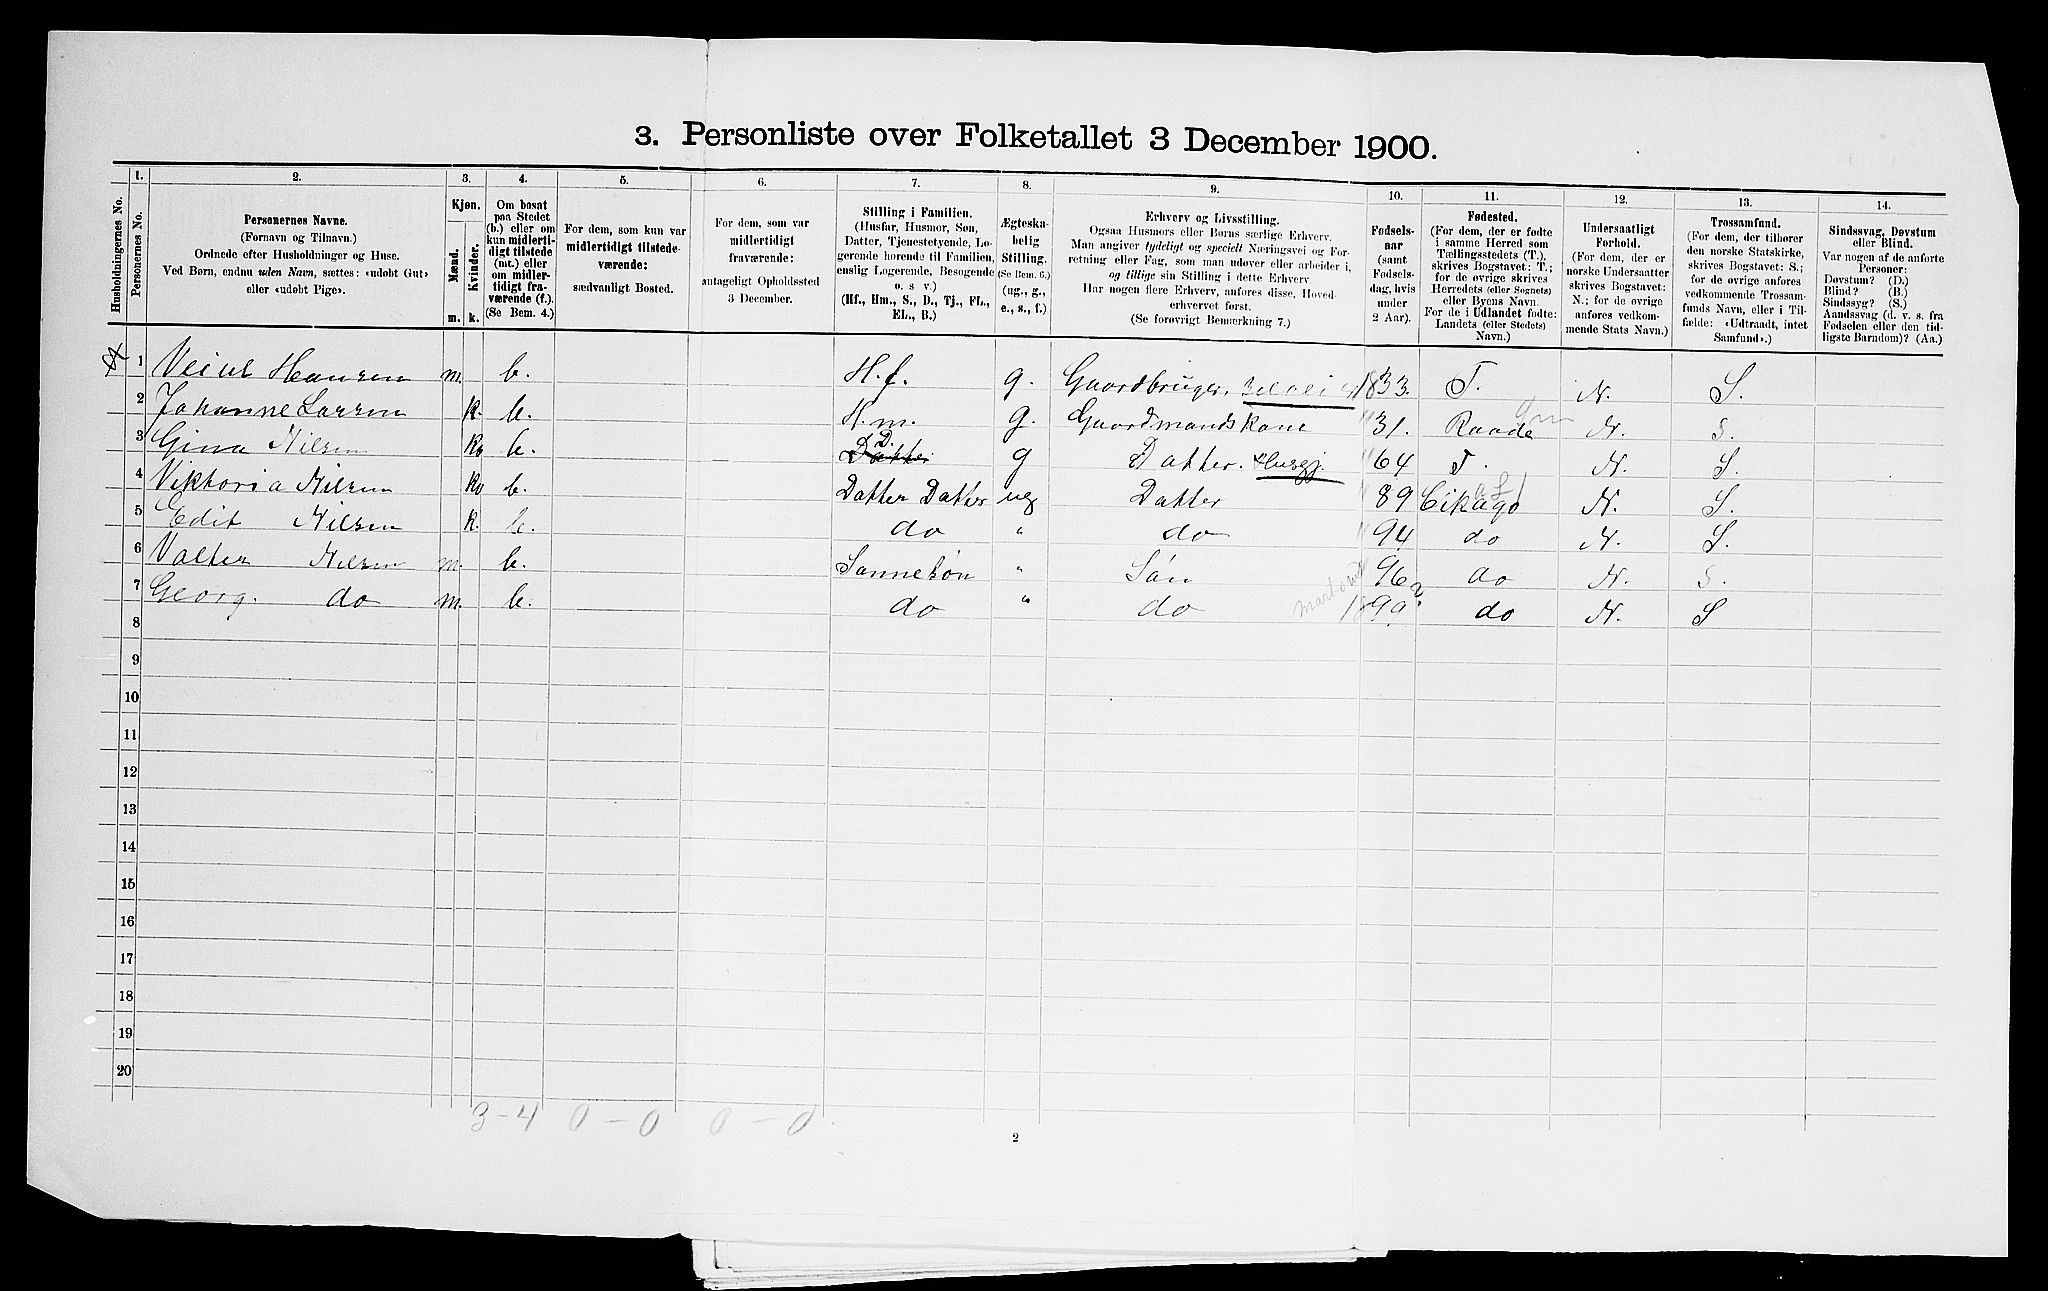 3. Personliste over Folketallet 3 December 1900.
Husholdningernes No.
1. Personernes No.
2. Personernes Navne. (Fornavn og Tilnavn.) Ordnede efter Husholdninger og Huse. Ved Børn, endnu uden Navn, sættes: «udøbt Gut» eller «udøbt Pige».
3. Kjøn. Mænd. m. Kvinder. k.
4. Om bosat paa Stedet (b.) eller om kun midlertidigt tilstede (mt.) eller om midlertidigt fraværende (f.). (Se Bem. 4.)
5. For dem, som kun var midlertidigt tilstedeværende: sædvanligt Bosted.
6. For dem, som var midlertidigt fraværende: antageligt Opholdssted 3 December.
7. Stilling i Familien. (Husfar, Husmor, Søn, Datter, Tjenestetyende, Logerende hørende til Familien, enslig Logerende, Besøgende o. s v.) (Hf., Hm., S., D., Tj., FL., EL., B.)
8. Ægteskabelig Stilling. (Se Bem. 6.) (ug., g., e., s., f.)
9. Erhverv og Livsstilling. Ogsaa Husmors eller Børns særlige Erhverv. Man angiver tydeligt og specielt Næringsvei og Forretning eller Fag, som man udøver eller arbeider i, og tillige sin Stilling i dette Erhverv. Har nogen flere Erhverv, anføres disse, Hovederhvervet først. (Se forøvrigt Bemærkning 7.)
10. Fødselsaar (samt Fødselsdag, hvis under 2 Aar).
11. Fødested. (For dem, der er fødte i samme Herred som Tællingsstedets (T.), skrives Bogstavet: T.; for de øvrige skrives Herredets (eller Sognets) eller Byens Navn. For de i Udlandet fødte: Landets (eller Stedets) Navn.)
12. Undersaatligt Forhold. (For dem, der er norske Undersaatter skrives Bogstavet: N.; for de øvrige anføres vedkommende Stats Navn.)
13. Trossamfund. (For dem, der tilhører den norske Statskirke, skrives Bogstavet: S.; for de øvrige anføres vedkommende Trossamfunds Navn, eller i Tilfælde: «Udtraadt, intet Samfund».)
14. Sindssvag, Døvstum eller Blind. Var nogen af de anførte Personer: Døvstum? (D.) Blind? (B.) Sindssyg? (S.) Aandssvag (d. v. s. fra Fødselen eller den tidligste Barndom)? (Aa.)
1 Veiul Hansen m. b. H.f. g. Gaardbruger, Selvei 1833. T. N. S.
2 Johanne Larsen k. b. H.m. g. Gaardmandskone " 31. Raade N. S.
3 Gina Nilsen k b. Datter D. g Datter. Husgj. " 64 T. N. S.
4 Viktoria Nilsen k b. Datter Datter ug Datter " 89 Cikago N. S.
5 Edit Nilsen k. b. do " do " 94 do N. S.
6 Valter Nilsen m. b. Sønnesøn " Søn 96 do N. S.
7 Georg. do m. b. do " do 1899. do N. S
8
9
10
11
12
13
14
15
16
17
18
19
20
3-4 0-0 0-0
2